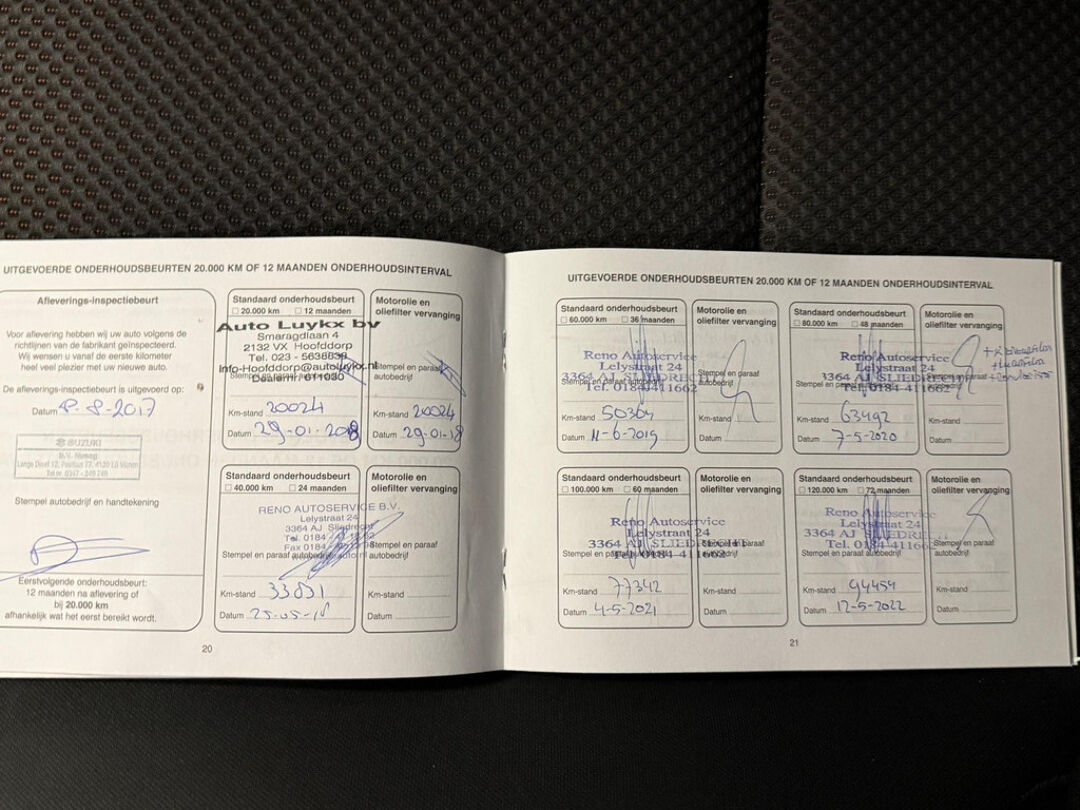 UITGEVOERDE ONDERHOUDSBEURTEN 20.000 KM OF 12 MAANDEN ONDERHOUDSINTERVAL
Afleverings-inspectiebeurt
Voor aflevering hebben wij uw auto volgens de
richtlijnen van de fabrikant geïnspecteerd.
Wij wensen u vanaf de eerste kilometer
heel veel plezier met uw nieuwe auto.
De afleverings-inspectiebeurt is uitgevoerd op:
Datum 8-8-2017
SUZUKI
Stempel autobedrijf en handtekening
Eerstvolgende onderhoudsbeurt:
12 maanden na aflevering of
bij 20.000 km
afhankelijk wat het eerst bereikt wordt.
Standaard onderhoudsbeurt
20.000 km 12 maanden
Auto Luykx bv
Smaragdlaan 4
2132 VX Hoofddorp
Tel. 023 - 5638838
Info-Hoofddorp@autoluykx.nl
Dealernr. 011030
Km-stand 20024
Datum 29-01-2018
Motorolie en
oliefilter vervanging
Stempel en paraaf
autobedrijf
Km-stand 20024
Datum 29-01-18
Standaard onderhoudsbeurt
40.000 km 24 maanden
RENO AUTOSERVICE B.V.
Lelystraat 24
3364 AJ Sliedrecht
Tel. 0184
Fax 0184
Stempel en paraaf autobedrijf
Km-stand 33831
Datum 25-05-18
Motorolie en
oliefilter vervanging
Stempel en paraaf
autobedrijf
Km-stand
Datum
20
UITGEVOERDE ONDERHOUDSBEURTEN 20.000 KM OF 12 MAANDEN ONDERHOUDSINTERVAL
Standaard onderhoudsbeurt
60.000 km 36 maanden
Reno Autoservice
Lelystraat 24
3364 AJ SLIEDRECHT
Tel. 0184-411662
Km-stand 50364
Datum 11-6-2019
Motorolie en
oliefilter vervanging
Stempel en paraaf
autobedrijf
Km-stand
Datum
Standaard onderhoudsbeurt
80.000 km 48 maanden
Reno Autoservice
Lelystraat 24
3364 AJ SLIEDRECHT
Tel. 0184-411662
Km-stand 63492
Datum 7-5-2020
Motorolie en
oliefilter vervanging
Stempel en paraaf
autobedrijf
Km-stand
Datum
Standaard onderhoudsbeurt
100.000 km 60 maanden
Reno Autoservice
Lelystraat 24
3364 AJ SLIEDRECHT
Tel. 0184-411662
Stempel en paraaf autobedrijf
Km-stand 77342
Datum 4-5-2021
Motorolie en
oliefilter vervanging
Stempel en paraaf
autobedrijf
Km-stand
Datum
Standaard onderhoudsbeurt
120.000 km 72 maanden
Reno Autoservice
Lelystraat 24
3364 AJ SLIEDRECHT
Tel. 0184-411662
Stempel en paraaf autobedrijf
Km-stand 94454
Datum 12-5-2022
Motorolie en
oliefilter vervanging
Stempel en paraaf
autobedrijf
Km-stand
Datum
21